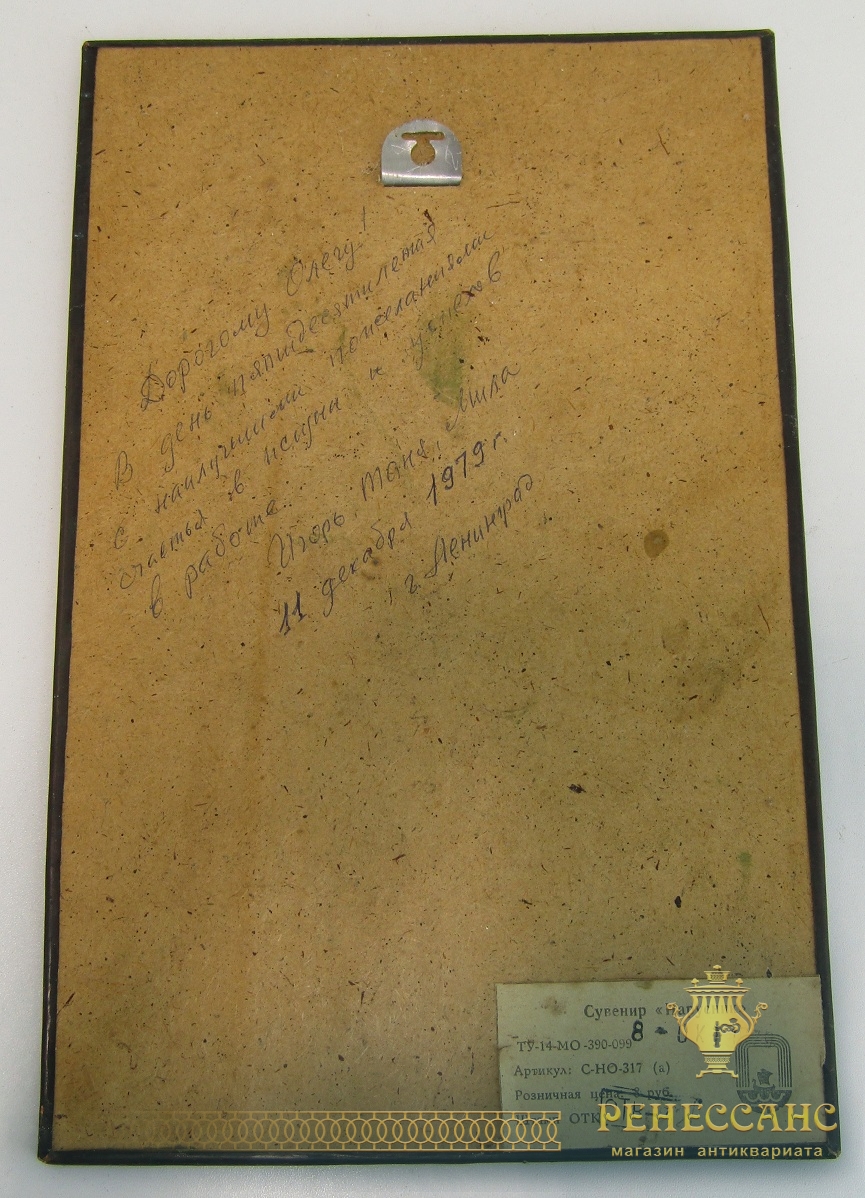 Дорогому Олегу!
В день пятидесятилетия
с наилучшими пожеланиями
счастья в жизни и успехов
в работе.
Игорь, Таня, Мила
11 декабря 1979 г.
г. Ленинград
Сувенир
8 -
ТУ-14-МО-390-099
Артикул: С-НО-317 (а)
Розничная цена: 8 руб.
ОТК
РЕНЕССАНС
магазин антиквариата